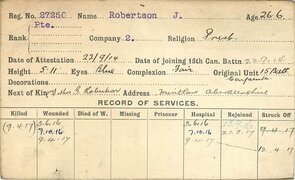 Reg. No. 27250 Name Robertson J. Age 26.6
Rank Pte. Company 2. Religion Presb
Date of Attestation 22/9/14 Date of joining 15th Can. Battn 22.9.14
Height 5.11 Eyes Blue Complexion Fair Original Unit 15 Batt
Decorations
Next of Kin Mrs G. Robertson Address Mintlaw Aberdeenshire
RECORD OF SERVICES.
Killed Wounded Died of W. Missing Prisoner Hospital Rejoined Struck Off
(9.4.17) 3.6.16 3.6.16 9.4.17
7.10.16 7.10.16 21.3.17
9.4.17 9.4.17 12.4.17